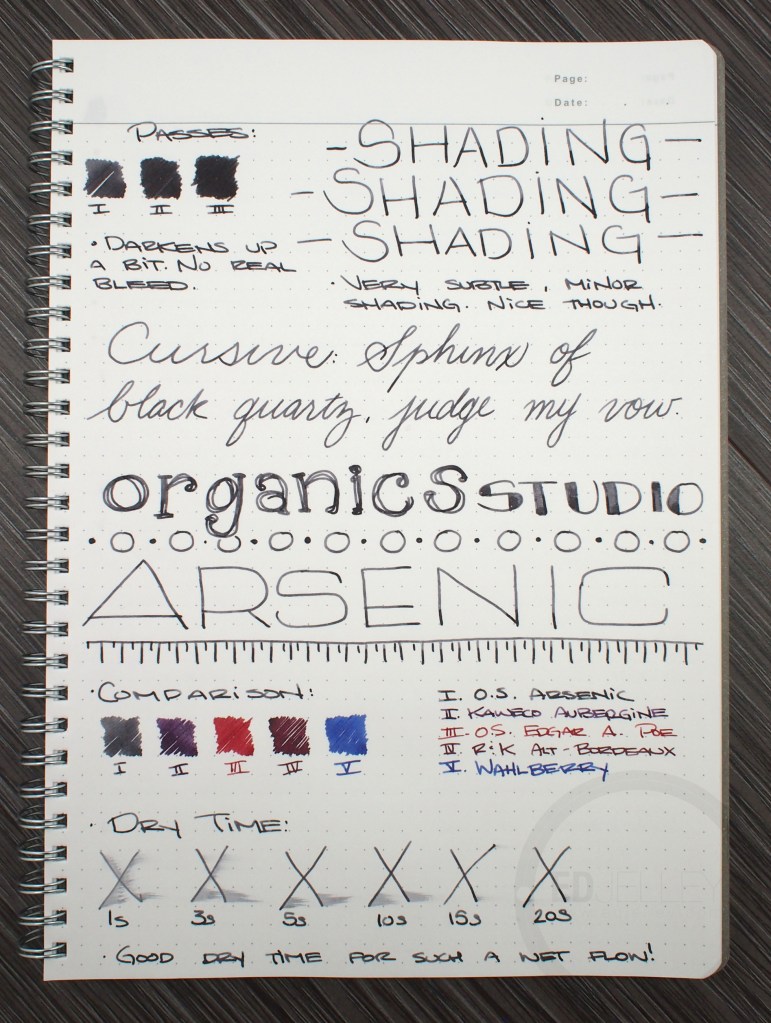 Page:
Date:
PASSES:
I II III
• DARKENS UP
A BIT. NO REAL
BLEED.
- SHADING -
- SHADING -
- SHADING -
• VERY SUBTLE, MINOR
SHADING. NICE THOUGH.
Cursive: Sphinx of
black quartz, judge my vow.
organics STUDIO
ARSENIC
• COMPARISON:
I II III IV V
I. O.S. ARSENIC
II. KAWECO AUBERGINE
III. O.S. EDGAR A. POE
IV. R:K ALT-BORDEAUX
V. WAHLBERRY
• DRY TIME:
X X X X X X
1s 3s 5s 10s 15s 20s
• GOOD DRY TIME FOR SUCH A WET FLOW!
ED JELLEY